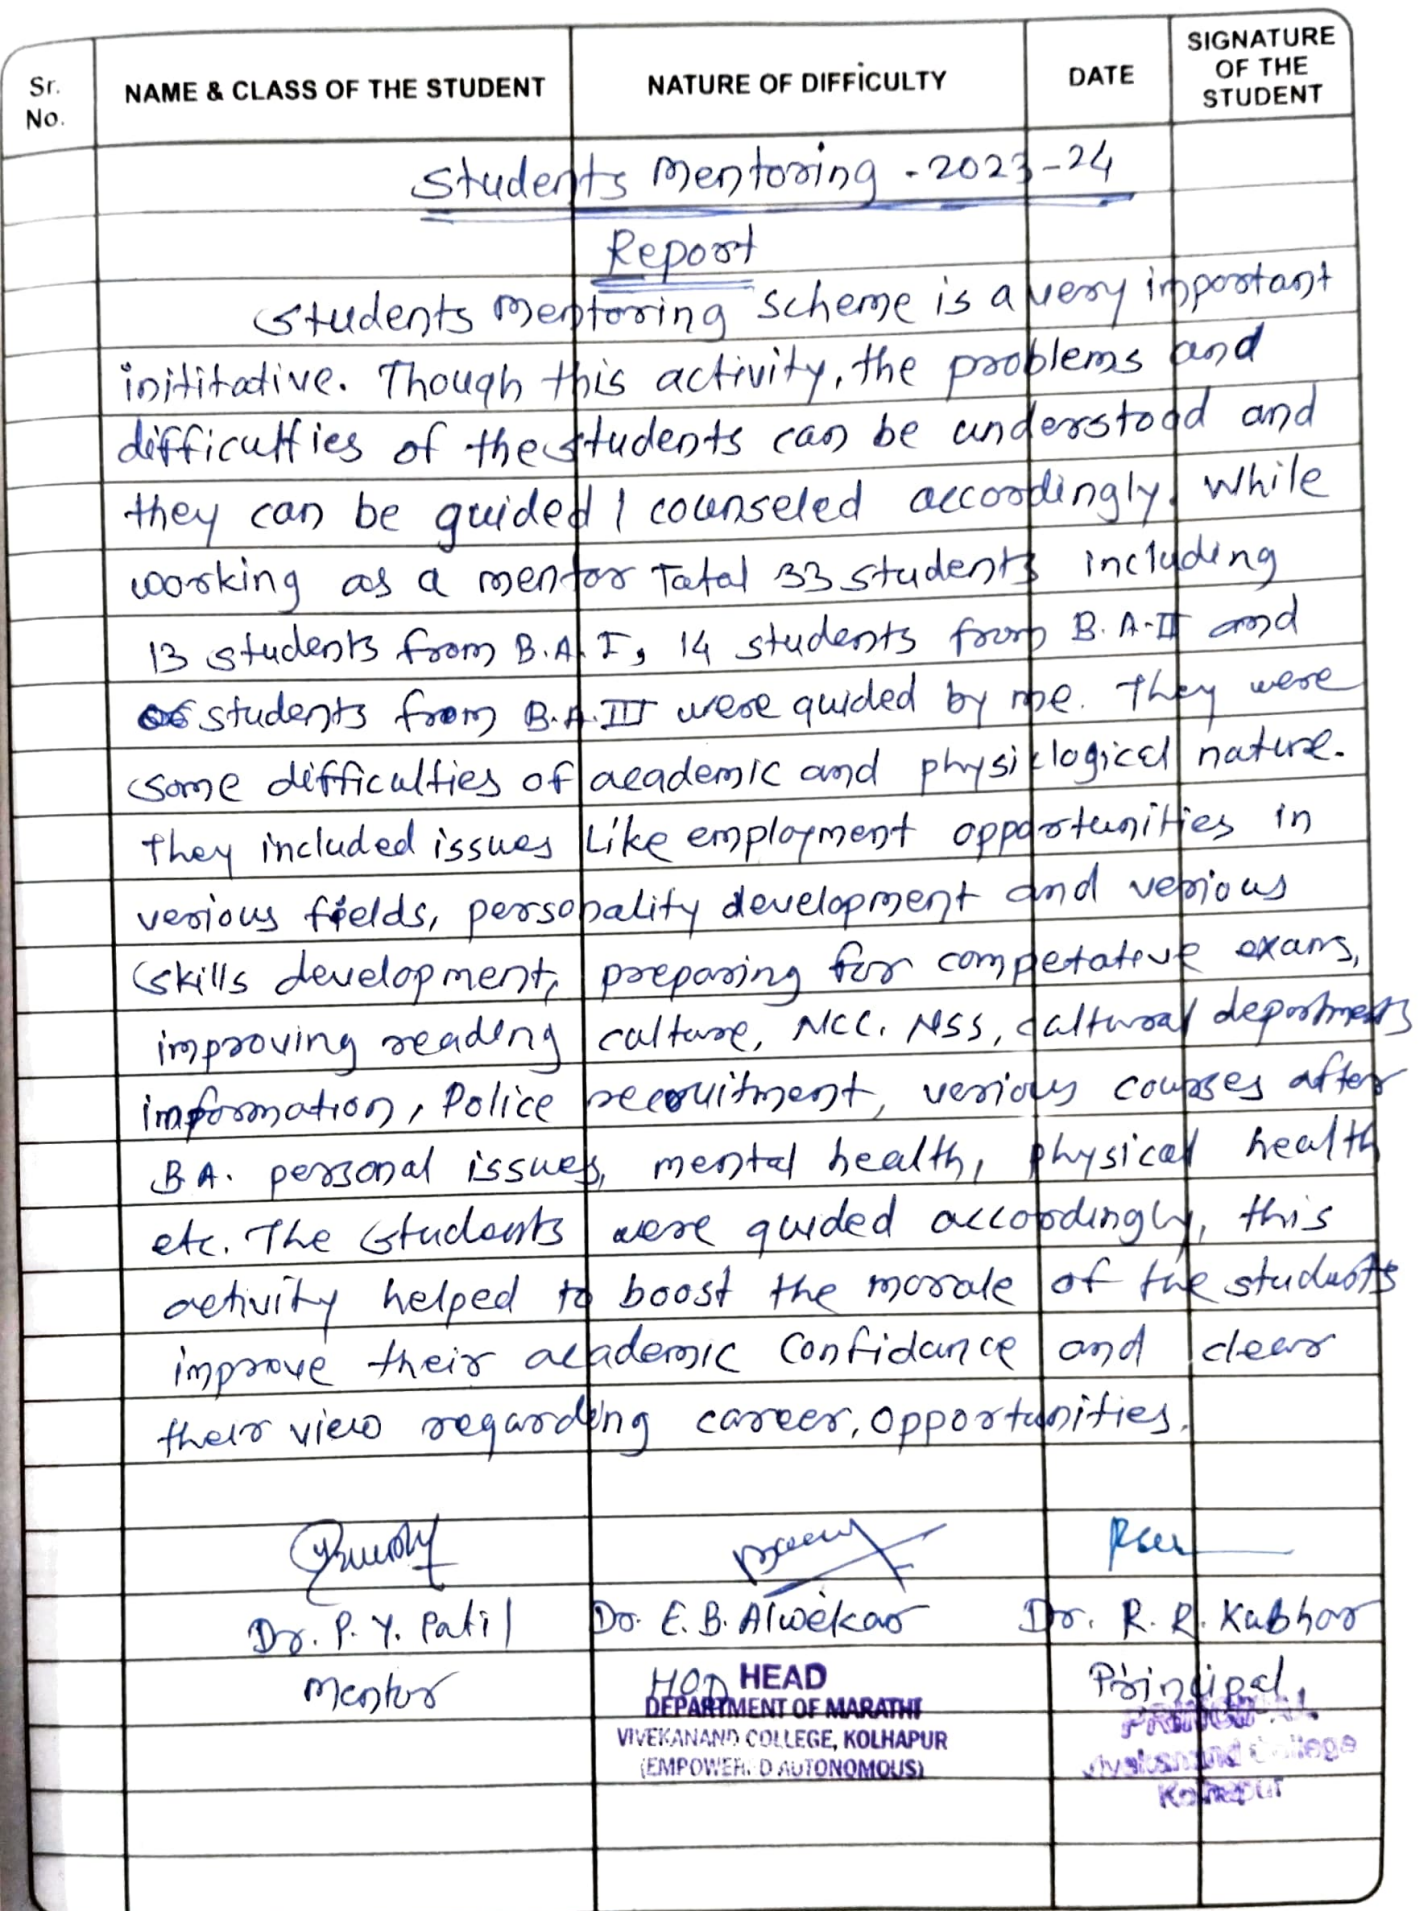 Sr. No.
NAME & CLASS OF THE STUDENT
NATURE OF DIFFICULTY
DATE
SIGNATURE OF THE STUDENT
Students Mentoring - 2023-24
Report
Students Mentoring Scheme is a very important
inititative. Though this activity, the problems and
difficulties of the students can be understood and
they can be guided / counseled accordingly. While
working as a mentor Total 33 students including
13 students from B.A. I, 14 students from B. A-II and
06 students from B.A.III were guided by me. They were
some difficulties of academic and physiclogical nature.
They included issues Like employment opportunities in
verious fields, personality development and verious
skills development, preparing for competative exams,
improving reading culture, NCC. NSS, cultural departments
information, Police recruitment, verious courses after
B.A. personal issues, mental health, physical health
etc. The students were guided accordingly, this
activity helped to boost the morale of the students
improve their academic Confidance and clear
their view regarding career, opportunities.
Dr. P. Y. Patil
Dr. E. B. Alwekar
Dr. R. R. Kubhar
Mentor
HOD
Principal,
HEAD
DEPARTMENT OF MARATHI
VIVEKANAND COLLEGE, KOLHAPUR
(EMPOWERED AUTONOMOUS)
PRINCIPAL
Vivekanand College
Kolhapur